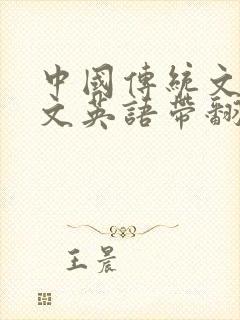 中國傳統文
文英語帶翻
王晨